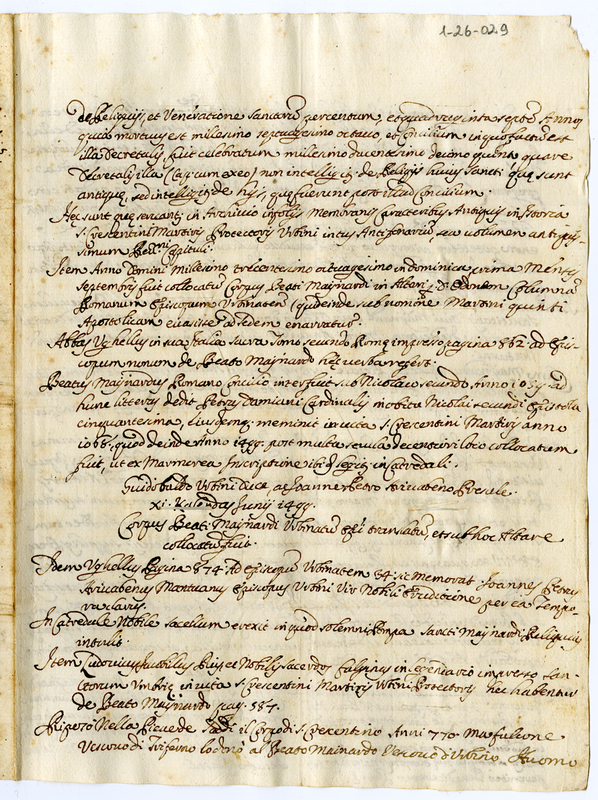 1-26-02.9
de Reliquijs, et Veneratione Sanctorũ percentum, et quadraginta septẽ Annos
quia mortuus est millesimo septuagesimo octavo, et Concilium in quo factũ est
illa Decretalis, fuit celebratum millesimo ducentesimo decimo quinto quare
Decretalis illa (Cap: cum ex eo) non intelligit de Religijs huius Sancti quę sunt
antiquę, sed intelligit de hijs, quę fuerunt post illud Concilium.
Hęc sunt quę servantur in Archivio in folijs Membranis Caracteribus Antiquis in Istoria
S. Crescentini Martiris Protectoris Urbini intus Antifonariũ, seu volumen antiquis-
simum Rmi Capituli.
Item Anno Domini Millesimo trecentesimo octuagesimo in dominica prima Mensis
Septembris fuit collocatum Corpus Beati Maynardi in Altari, D. Odonem Columnã
Romanum Episcopum Urbinatem (qui deinde sub nomine Martini quinti
Apostolicam evasit ad Sedem enarratur.
Abbas Ughellius in sua Italia Sacra Tomo secundo Romę impresso pagina 862. ad Epis-
copum nonum de Beato Maynardo hęc verba refert.
Beatus Maynardus Romano Concilio interfuit sub Nicolao secundo Anno 1059. ad
hunc litteras dedit Petrus Damiani Cardinalis in obitu Nicolai secundi Epistola
cinquantesima, Eiusdemq; meminit in vita S. Crescentini Martiris anno
1068. quod deinde Anno 1499. post multa secula decentiori loco collocatum
fuit, ut ex Marmorea Inscriptione ibiq; legitur in Catredali.
Guido baldo Urbini Duce, ac Joanne Petro Arivabeno Presule.
xi. Kalendas Junij 1499.
Corpus Beati Maynardi Urbinatis Epi translatũ, et sub hoc Altare
collocatũ fuit.
Idem Ughellus Pagina 874. Ad Episcopũ Urbinatem 34. sic memorat Joannes Petrus
Arivabenus Mantuanus Episcopus Urbini Vir Nobilis Eruditione per ea Tempo-
ra clarus.
In Catredale Nobile sacellum erexit in quod solemni Pompa Sancti Maynardi Reliquias
intulit.
Item Ludovicus Jacobillus Pius et Nobilis Sacerdos Fulginas in legendario impresso San-
ctorum Umbrię in vita S. Crescentini Martiris Urbini Protectoris hęc habentur
de Beato Maynardo pag. 584.
Riposò nella Pieve de Saddi il Corpo di S. Crescentino Anni 770. ma fulcone
Vescovo di Tiferno lo donò al Beato Mainardo Vescovo d'Urbino Huomo